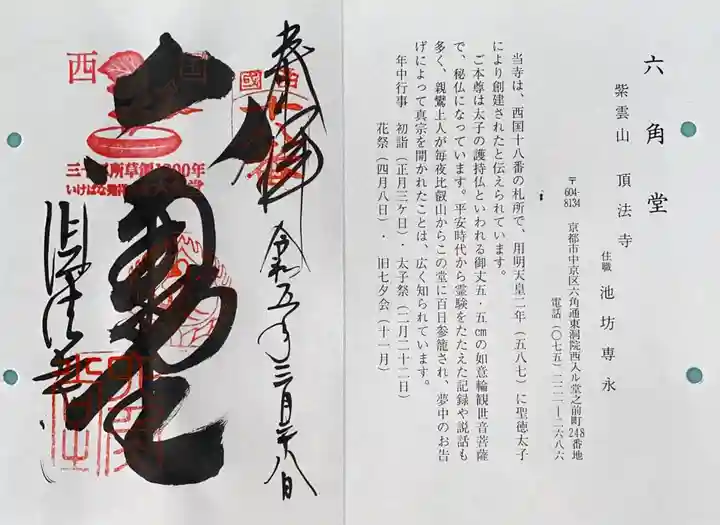 六角堂
紫雲山 頂法寺
住職 池坊専永
〒604-8134 京都市中京区六角通東洞院西入ル堂之前町248番地
電話(〇七五)二二一―二六八六
当寺は、西国十八番の札所で、用明天皇二年(五八七)に聖徳太子
により創建されたと伝えられています。
ご本尊は太子の護持仏といわれる御丈五・五cmの如意輪観世音菩薩
で、秘仏になっています。平安時代から霊験をたたえた記録や説話も
多く、親鸞上人が毎夜比叡山からこの堂に百日参籠され、夢中のお告
げによって真宗を開かれたことは、広く知られています。
年中行事 初詣(正月三ケ日)・太子祭(二月二十二日)
花祭(四月八日)・ 旧七夕会(十一月)
奉拝
令和五年三月廿八日
六角堂
頂法寺
西国
三十三所草創1300年
いけばな発祥